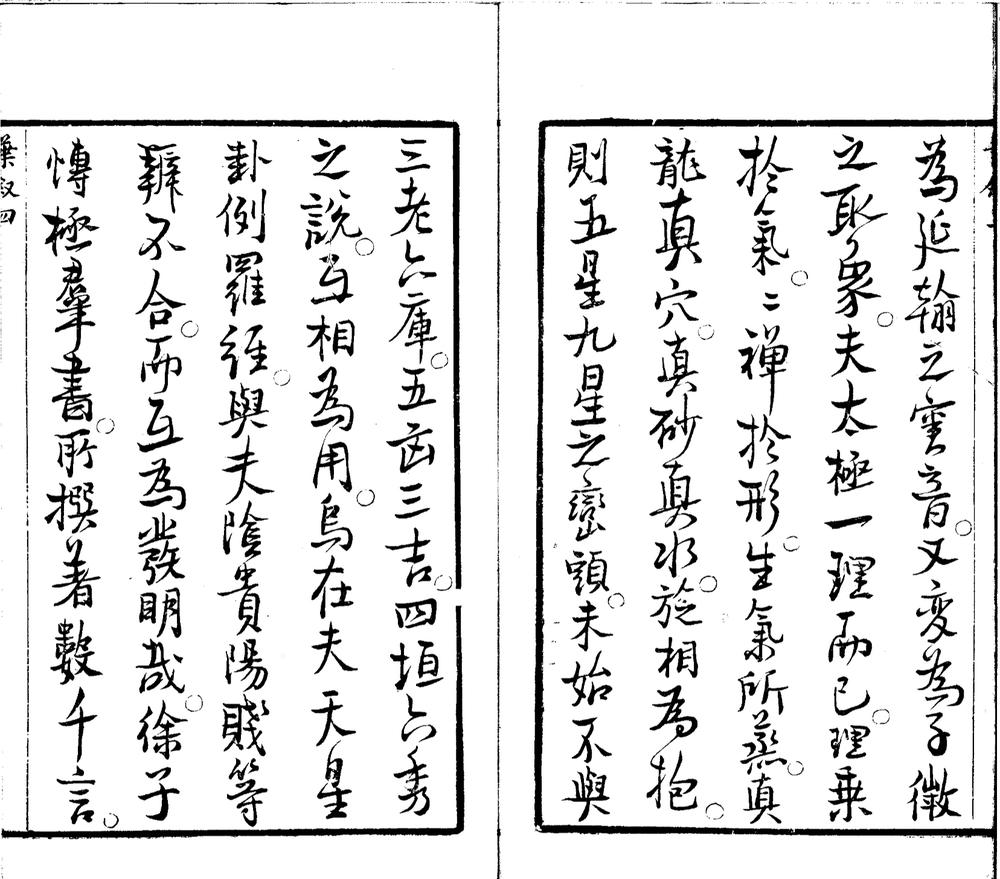 為延翰之密音又変為子徵
之取象夫太極一理而已理乗
扵氣〻禪扵形生氣所蒸真
龍真穴真砂真水旋相為抱
則五星九星之巒頭未始不與
三老六庫五凶三吉四垣六秀
之説互相為用烏在夫天星
卦例羅経與夫陰貴陽賤等
辨不合而互為發明哉徐子
慱極羣書所撰著數千言
葉叙四